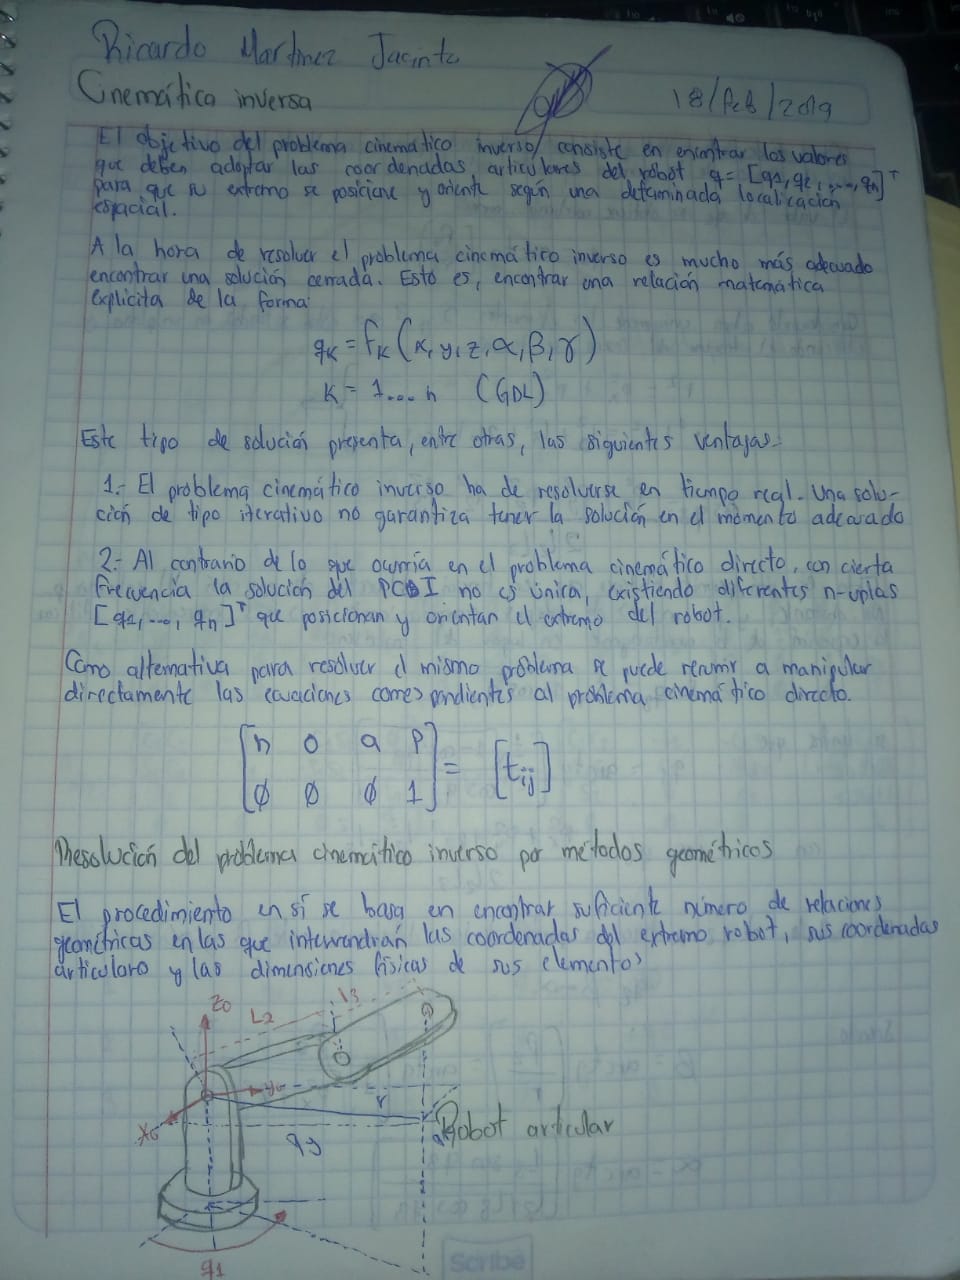 Ricardo Martinez Jacinto
Cinemática inversa
18/feb/2019
El objetivo del problema cinemático inverso consiste en encontrar los valores
que deben adoptar las coordenadas articulares del robot q = [q1, q2, ..., qn]^T
para que su extremo se posicione y oriente según una determinada localización
espacial.
A la hora de resolver el problema cinemático inverso es mucho más adecuado
encontrar una solución cerrada. Esto es, encontrar una relación matemática
explicita de la forma:
qk = fk(x, y, z, α, β, γ)
k = 1...n (GDL)
Este tipo de solución presenta, entre otras, las siguientes ventajas.
1.- El problema cinemático inverso ha de resolverse en tiempo real. Una solu-
ción de tipo iterativo no garantiza tener la solución en el momento adecuado
2.- Al contrario de lo que ocurría en el problema cinemático directo, con cierta
frecuencia la solución del PC I no es única, existiendo diferentes n-uplas
[q1, ..., qn]^T que posicionan y orientan el extremo del robot.
Como alternativa para resolver el mismo problema se puede recurrir a manipular
directamente las ecuaciones correspondientes al problema cinemático directo.
[n o a p
0 0 0 1] = [tij]
Resolución del problema cinemático inverso por métodos geométricos
El procedimiento en sí se basa en encontrar suficiente número de relaciones
geométricas en las que intervendrán las coordenadas del extremo robot, sus coordenadas
articulares y las dimensiones físicas de sus elementos
Z0
L2
l3
y0
r
X0
Robot articular
q1
Scribe